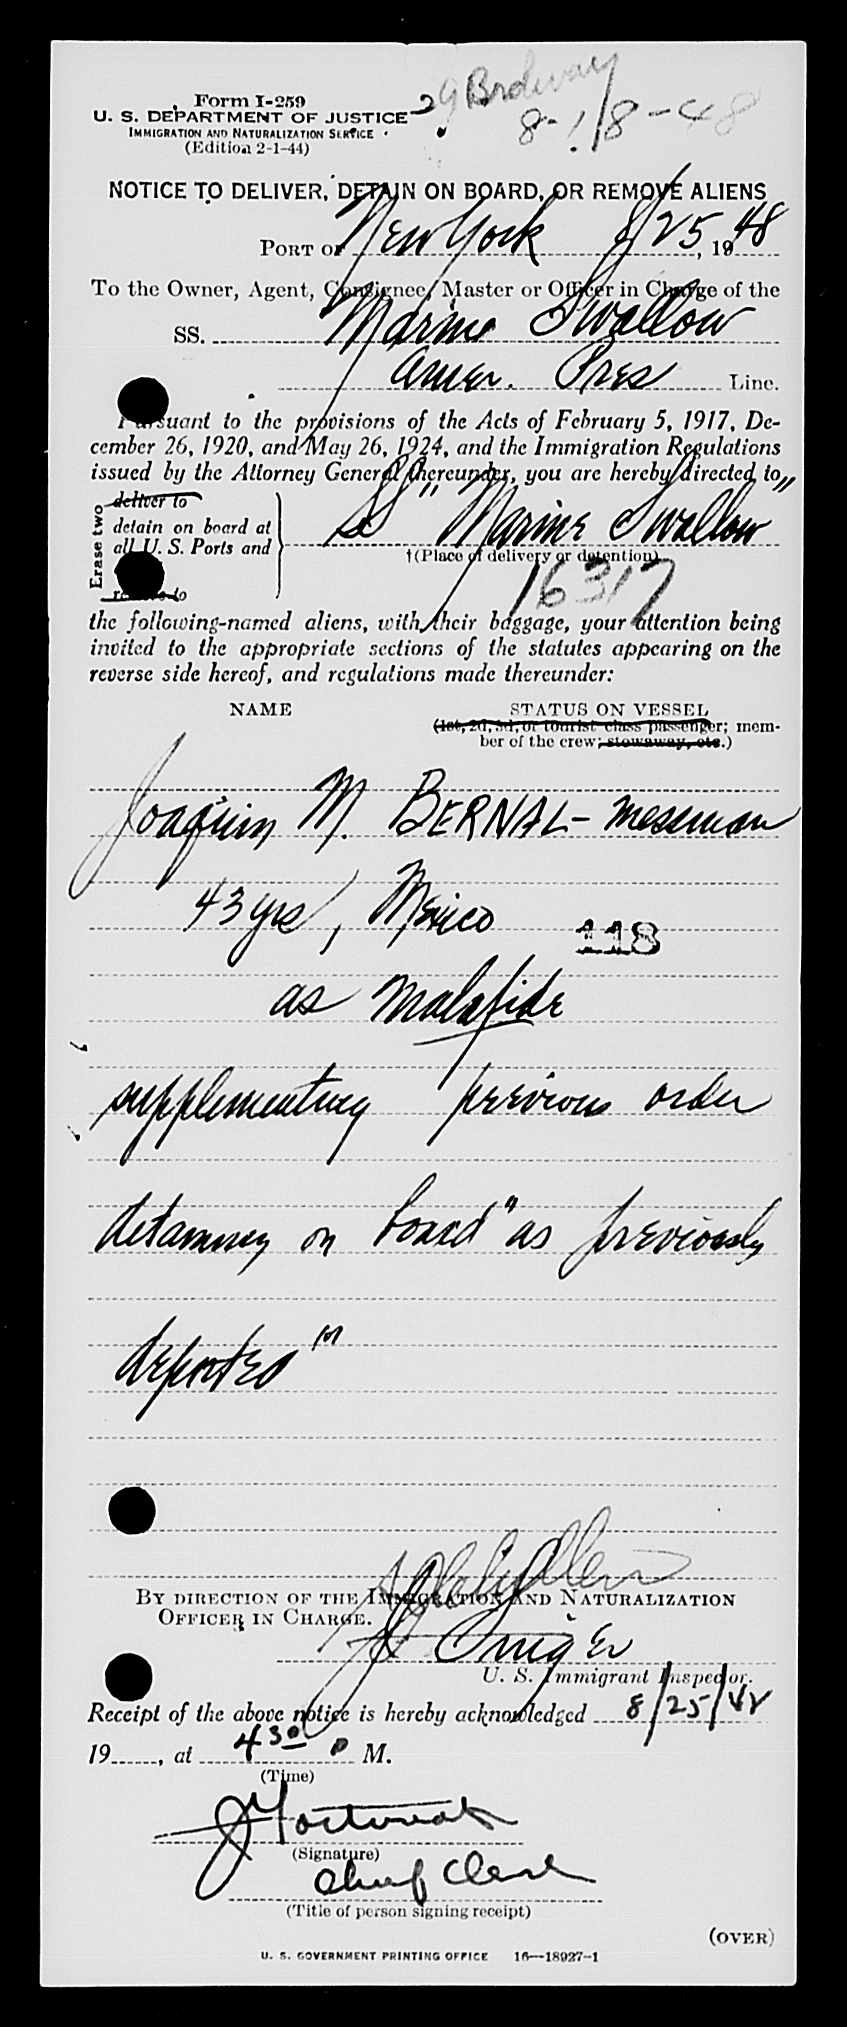 29 Brodway
8-18-48
Form I-259
U. S. DEPARTMENT OF JUSTICE
IMMIGRATION AND NATURALIZATION SERVICE
(Edition 2-1-44)
NOTICE TO DELIVER, DETAIN ON BOARD, OR REMOVE ALIENS
PORT OF New York 8/25, 1948
To the Owner, Agent, Consignee, Master or Officer in Charge of the
SS. Marine Swallow
Amer. Pres Line.
Pursuant to the provisions of the Acts of February 5, 1917, De-
cember 26, 1920, and May 26, 1924, and the Immigration Regulations
issued by the Attorney General thereunder, you are hereby directed to
Erase two
deliver to
detain on board at SS "Marine Swallow"
all U. S. Ports and
†(Place of delivery or detention)
remove to
16317
the following-named aliens, with their baggage, your attention being
invited to the appropriate sections of the statutes appearing on the
reverse side hereof, and regulations made thereunder:
NAME STATUS ON VESSEL
(1st, 2d, 3d, or tourist class passenger; mem-
ber of the crew; stowaway, etc.)
Joaquin M. BERNAL - messman
43 yrs, Mexico 118
as malafide
supplementing previous order
detaining on board "as previously
deported"
BY DIRECTION OF THE IMMIGRATION AND NATURALIZATION
OFFICER IN CHARGE.
U. S. Immigrant Inspector.
Receipt of the above notice is hereby acknowledged 8/25/48
19, at 4 30 P M.
(Time)
(Signature)
Chief Clerk
(Title of person signing receipt)
(OVER)
U. S. GOVERNMENT PRINTING OFFICE 16—18927-1